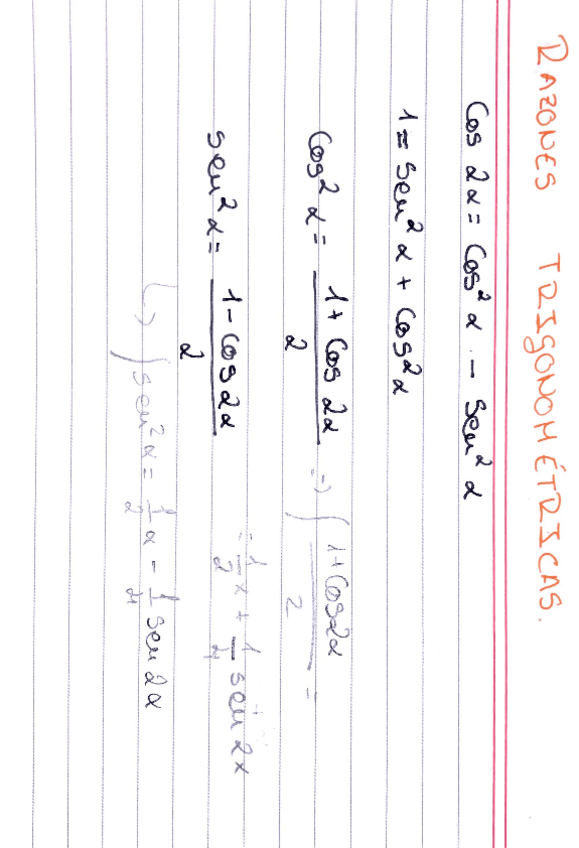 RAZONES TRIGONOMÉTRICAS.
Cos 2α = Cos² α - Sen² α
1 = Sen² α + Cos² α
Cos² α = (1 + Cos 2α)/2 => ∫ (1 + Cos 2α)/2 =
= 1/2 x + 1/4 sen 2x
Sen² α = (1 - Cos 2α)/2
↳ ∫ sen² α = 1/2 α - 1/4 sen 2α